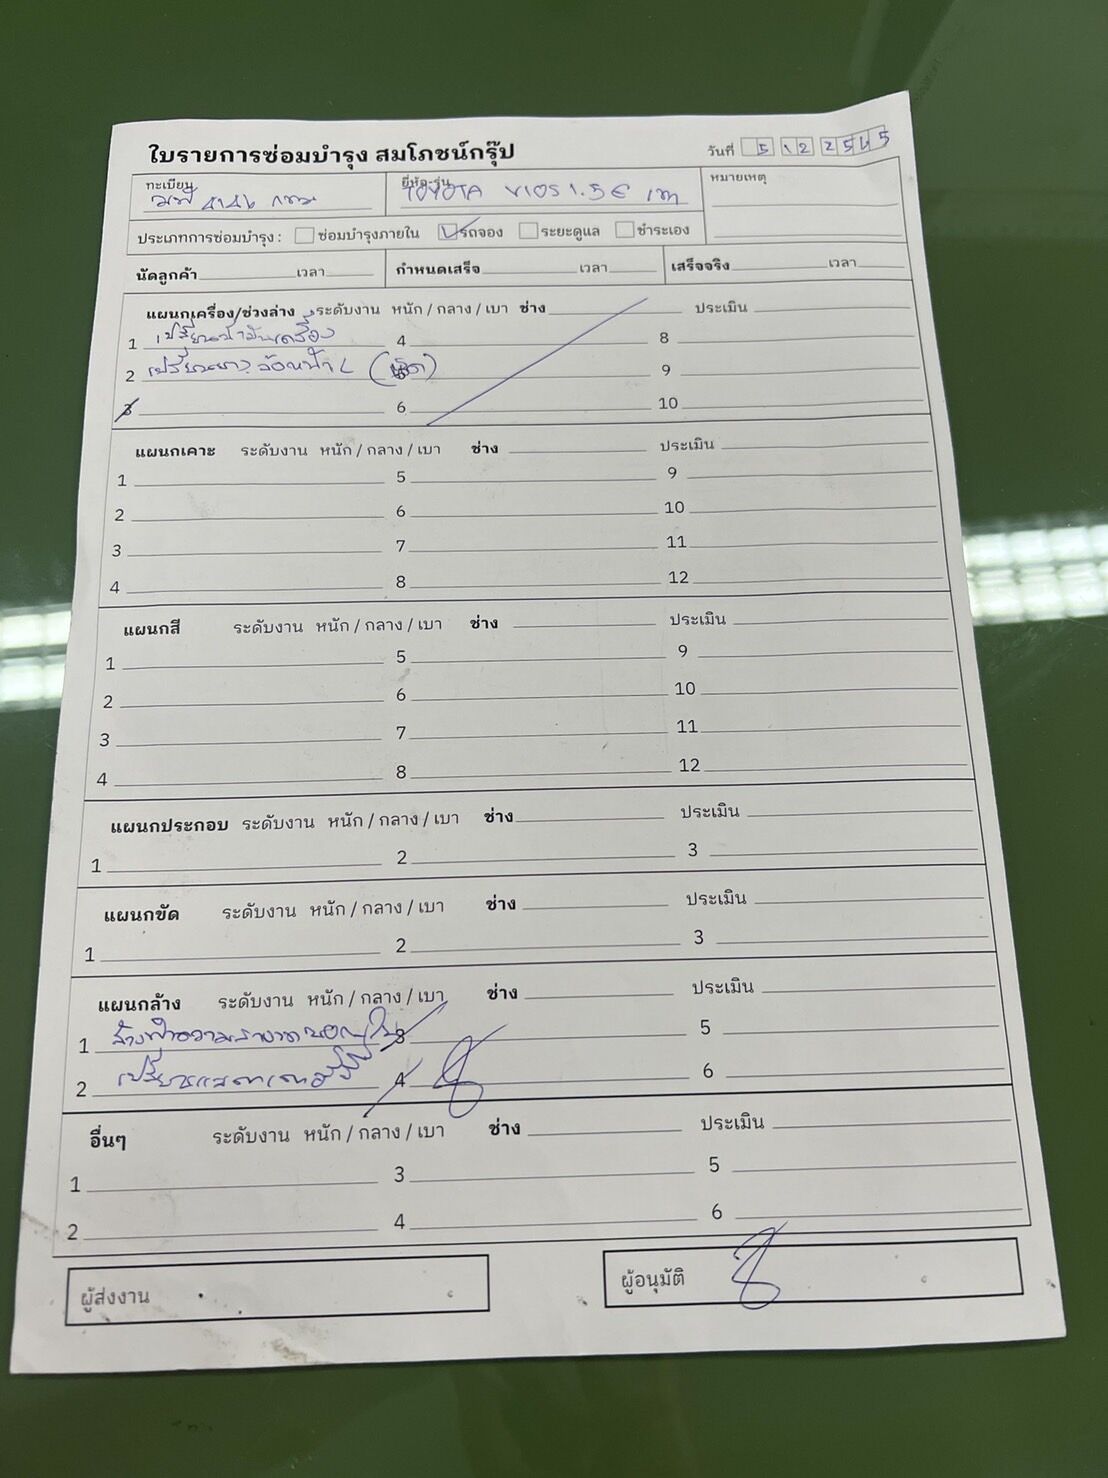 ใบรายการซ่อมบำรุง สมโภชน์กรุ๊ป
วันที่ 5 12 2545
ทะเบียน กทม
ยี่ห้อ-รุ่น TOYOTA VIOS 1.5 E
หมายเหตุ
ประเภทการซ่อมบำรุง : ซ่อมบำรุงภายใน รถจอง ระยะดูแล ชำระเอง
นัดลูกค้า เวลา กำหนดเสร็จ เวลา เสร็จจริง เวลา
แผนกเครื่อง/ช่วงล่าง ระดับงาน หนัก / กลาง / เบา ช่าง ประเมิน
1 เปลี่ยนน้ำมันเครื่อง 4 8
2 เปลี่ยนยางล้อหน้า L 9
3 6 10
แผนกเคาะ ระดับงาน หนัก / กลาง / เบา ช่าง ประเมิน
1 5 9
2 6 10
3 7 11
4 8 12
แผนกสี ระดับงาน หนัก / กลาง / เบา ช่าง ประเมิน
1 5 9
2 6 10
3 7 11
4 8 12
แผนกประกอบ ระดับงาน หนัก / กลาง / เบา ช่าง ประเมิน
1 2 3
แผนกขัด ระดับงาน หนัก / กลาง / เบา ช่าง ประเมิน
1 2 3
แผนกล้าง ระดับงาน หนัก / กลาง / เบา ช่าง ประเมิน
1 ล้างทำความสะอาด 3 5
2 4 6
อื่นๆ ระดับงาน หนัก / กลาง / เบา ช่าง ประเมิน
1 3 5
2 4 6
ผู้ส่งงาน
ผู้อนุมัติ